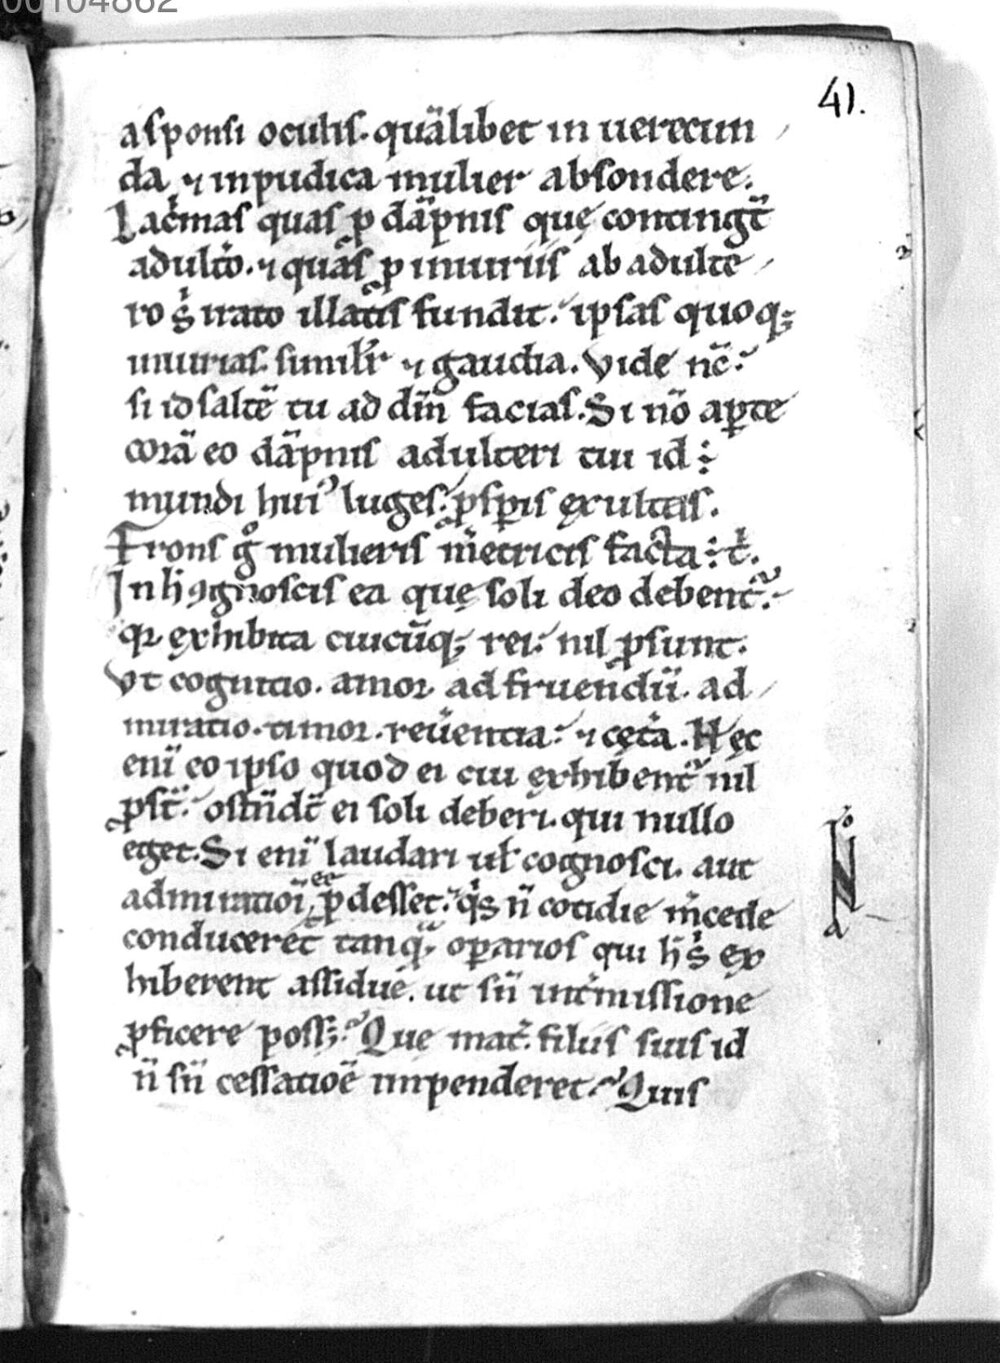 00104862
41.
a sponsi oculis. quālibet in uerecun
da ⁊ inpudica mulier absondere.
Lac̓mas quas ꝓ dāpnis quę contingt̄
adult̓o. ⁊ quas ꝓ iniuriis ab adulte
ro s̓ irato illatis fundit. ipsas quoq;
iniurias. simil̓r ⁊ gaudia. Vide nc̄.
si id saltē tu ad dn̄m facias. Si nō aꝑte
corā eo dāpnis adulteri tui id:
mundi hui᾽ luges. ꝓsꝑis exultas.
Frons g̊ mulieris m̓etricis facta: t̄.
In h̄ ꝯgnoscis ea quę soli deo debent᷑.
qꝛ exhibita cuicūq; rei: nil ꝓsunt.
Vt cognitio. amor ad fruendū. ad
miratio. timor. reu̓entia: ⁊ cęt̓a. Hęc
enī eo ipso quod ei cui exhibent᷑ nil
ꝓst̄. ostn̄dt̄ ei soli deberi. qui nullo
eget. Si enī laudari ul̓ cognosci. aut
admirationī ee ꝓdesset. q̓s n̄ cotidie m̓cede
conduceret tanq̄ oꝑarios qui h̄ s̓ ex
hiberent assidue. ut sn̄ int̓missione
ꝓficere poss;. Quę mat̓ filiis suis id
n̄ sn̄ cessatiōe impenderet. Quis
N̊
a